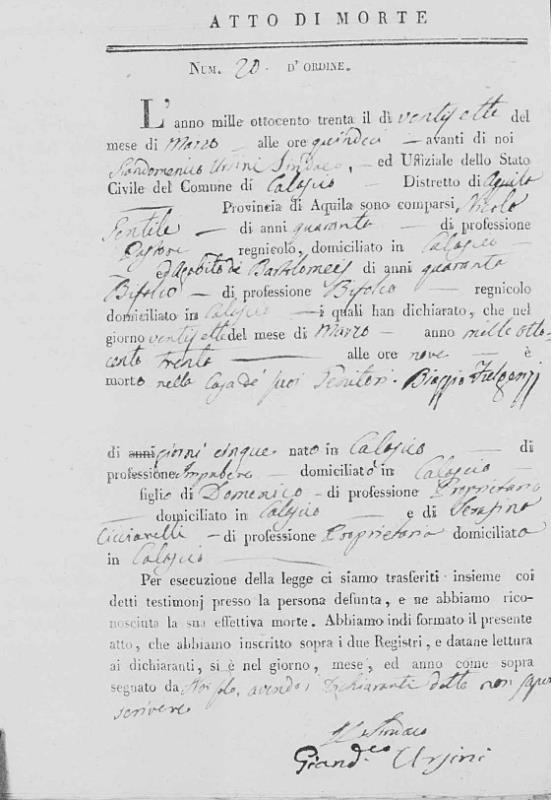 ATTO DI MORTE
NUM. 20 D' ORDINE.
L'anno mille ottocento trenta il dì ventisette del
mese di Marzo — alle ore quindeci — avanti di noi
Giandomenico Ursini Sindaco, — ed Uffiziale dello Stato
Civile del Comune di Calascio — Distretto di Aquila
— Provincia di Aquila sono comparsi Nicola
Gentile — di anni quaranta — di professione
Pastore regnicolo, domiciliato in Calascio —
ed Agabito de Bartolomeis di anni quaranta
Bifolco — di professione Bifolco — regnicolo
domiciliato in Calascio — i quali han dichiarato, che nel
giorno ventisette del mese di Marzo — anno mille otto-
cento trenta — alle ore nove — è
morto nella Casa de' suoi Genitori. Biaggio Fulgenzj
di anni giorni cinque nato in Calascio — di
professione Impubere — domiciliato in Calascio —
figlio di Domenico - di professione Proprietario
— domiciliato in Calascio — e di Serafina
Cicciarelli — di professione Proprietaria domiciliata
in Calascio —
Per esecuzione della legge ci siamo trasferiti insieme coi
detti testimonj presso la persona defunta, e ne abbiamo rico-
nosciuta la sua effettiva morte. Abbiamo indi formato il presente
atto, che abbiamo inscritto sopra i due Registri, e datane lettura
ai dichiaranti, si è nel giorno, mese, ed anno come sopra
segnato da Noi solo, avendo i dichiaranti detto non saper
scrivere
Il Sindaco
Giand.co Ursini